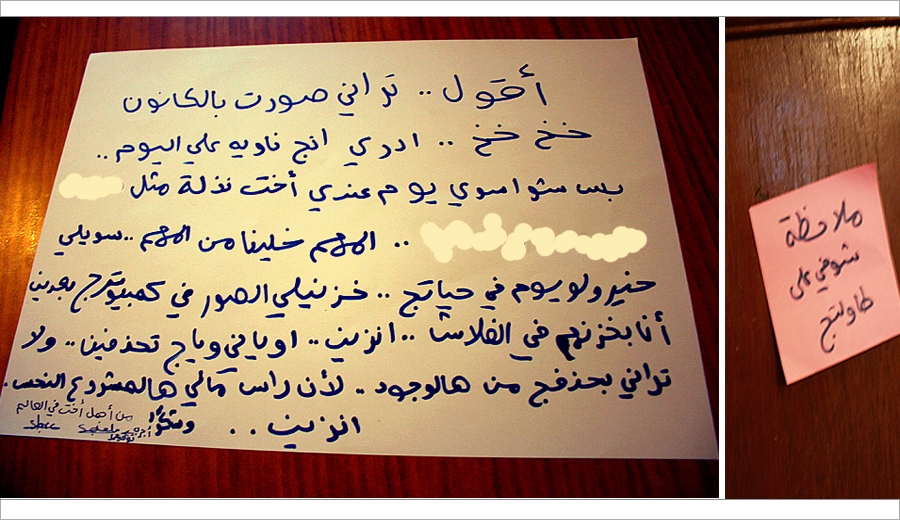 أقول .. تراني صورت بالكانون
خخ خخ .. ادري انج ناويه علي اليوم ..
بس شو اسوي يوم عندي أخت نذلة مثل
.. المهم خلينا من المهم .. سويلي
خير ولو يوم في حياتج .. خزنيلي الصور في كمبيوترج بعدين
أنا بخزنهم في الفلاش .. انزين .. اوياني وياج تحذفينا .. ولا
تراني بحذفج من هالوجود .. لأن راس مالي هالمشروع النحس .
انزين .. وشكرًا
من أحلى أخت في العالم
ملاحظة
شوفي على
طاولتج